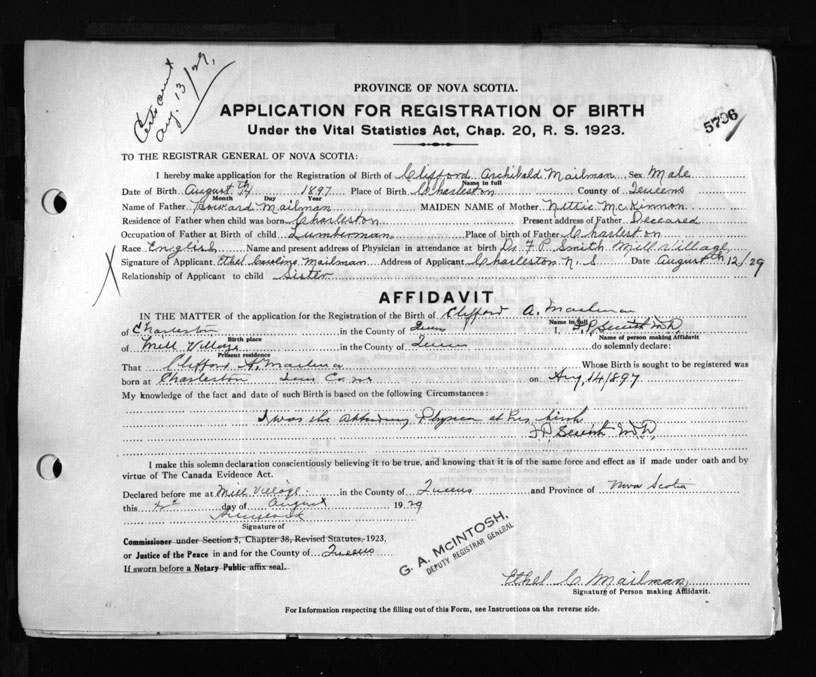 Aug. 13/29.
PROVINCE OF NOVA SCOTIA.
APPLICATION FOR REGISTRATION OF BIRTH
5706
Under the Vital Statistics Act, Chap. 20, R. S. 1923.
TO THE REGISTRAR GENERAL OF NOVA SCOTIA:
I hereby make application for the Registration of Birth of Clifford Archibald Mailman Sex Male
Name in full
Date of Birth August 14th 1897 Place of Birth Charleston County of Queens
Month Day Year
Name of Father Howard Mailman MAIDEN NAME of Mother Nettie McKinnon
Residence of Father when child was born Charleston Present address of Father Deceased
Occupation of Father at Birth of child Lumberman Place of birth of Father Charleston
Race English Name and present address of Physician in attendance at birth Dr. F. P. Smith Mill Village
Signature of Applicant Ethel Caroline Mailman Address of Applicant Charleston N. S Date August 12th/29
Relationship of Applicant to child Sister
AFFIDAVIT
IN THE MATTER of the application for the Registration of the Birth of Clifford A. Mailman
Name in full
of Charleston in the County of Queens I, F. P. Smith M.D.
Birth place Name of person making Affidavit
of Mill Village in the County of Queens do solemnly declare:
Present residence
That Clifford A. Mailman Whose Birth is sought to be registered was
born at Charleston Queens Co. N.S on Aug, 14/1897
My knowledge of the fact and date of such Birth is based on the following Circumstances:
I was the attending Physician at his birth
F. P. Smith M.D,
I make this solemn declaration conscientiously believing it to be true, and knowing that it is of the same force and effect as if made under oath and by
virtue of The Canada Evidence Act.
Declared before me at Mill Village in the County of Queens and Province of Nova Scotia
this day of August 1929
Signature of
Commissioner under Section 5, Chapter 38, Revised Statutes, 1923,
or Justice of the Peace in and for the County of Queens
If sworn before a Notary Public affix seal.
G. A. MCINTOSH,
DEPUTY REGISTRAR GENERAL
Ethel C. Mailman,
Signature of Person making Affidavit.
For Information respecting the filling out of this Form, see Instructions on the reverse side.